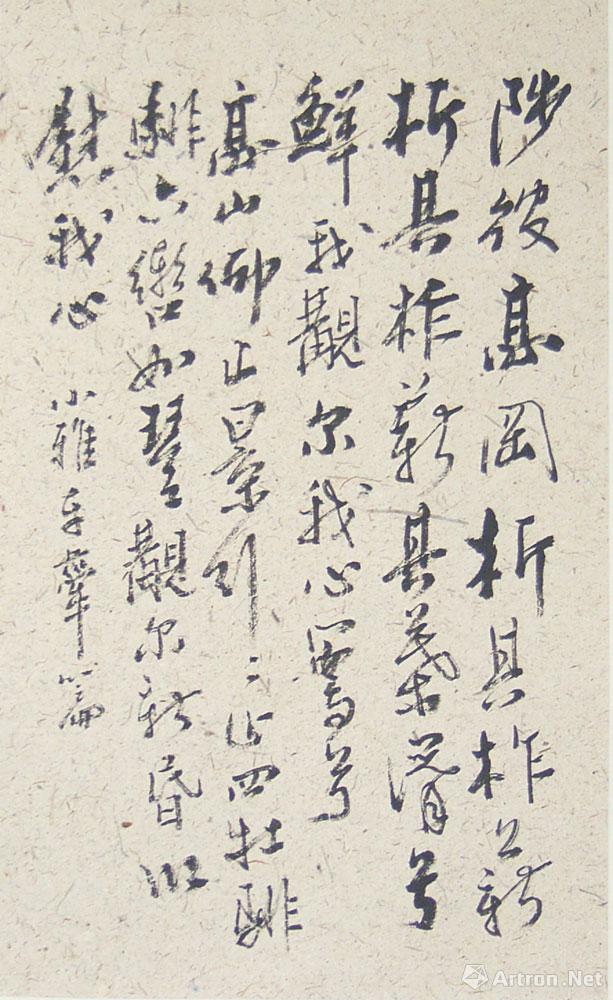 陟彼高岡析其柞薪
析其柞薪其葉湑兮
鮮我覯尔我心寫兮
高山仰止景行〻止四牡騑
騑六轡如琴覯尔新昏以
慰我心 小雅车舝篇
Artron.Net